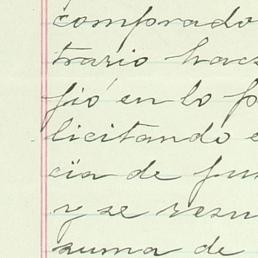 comprado
trario hac
fió en lo p
licitando e
cia de fun
y se resu
suma de